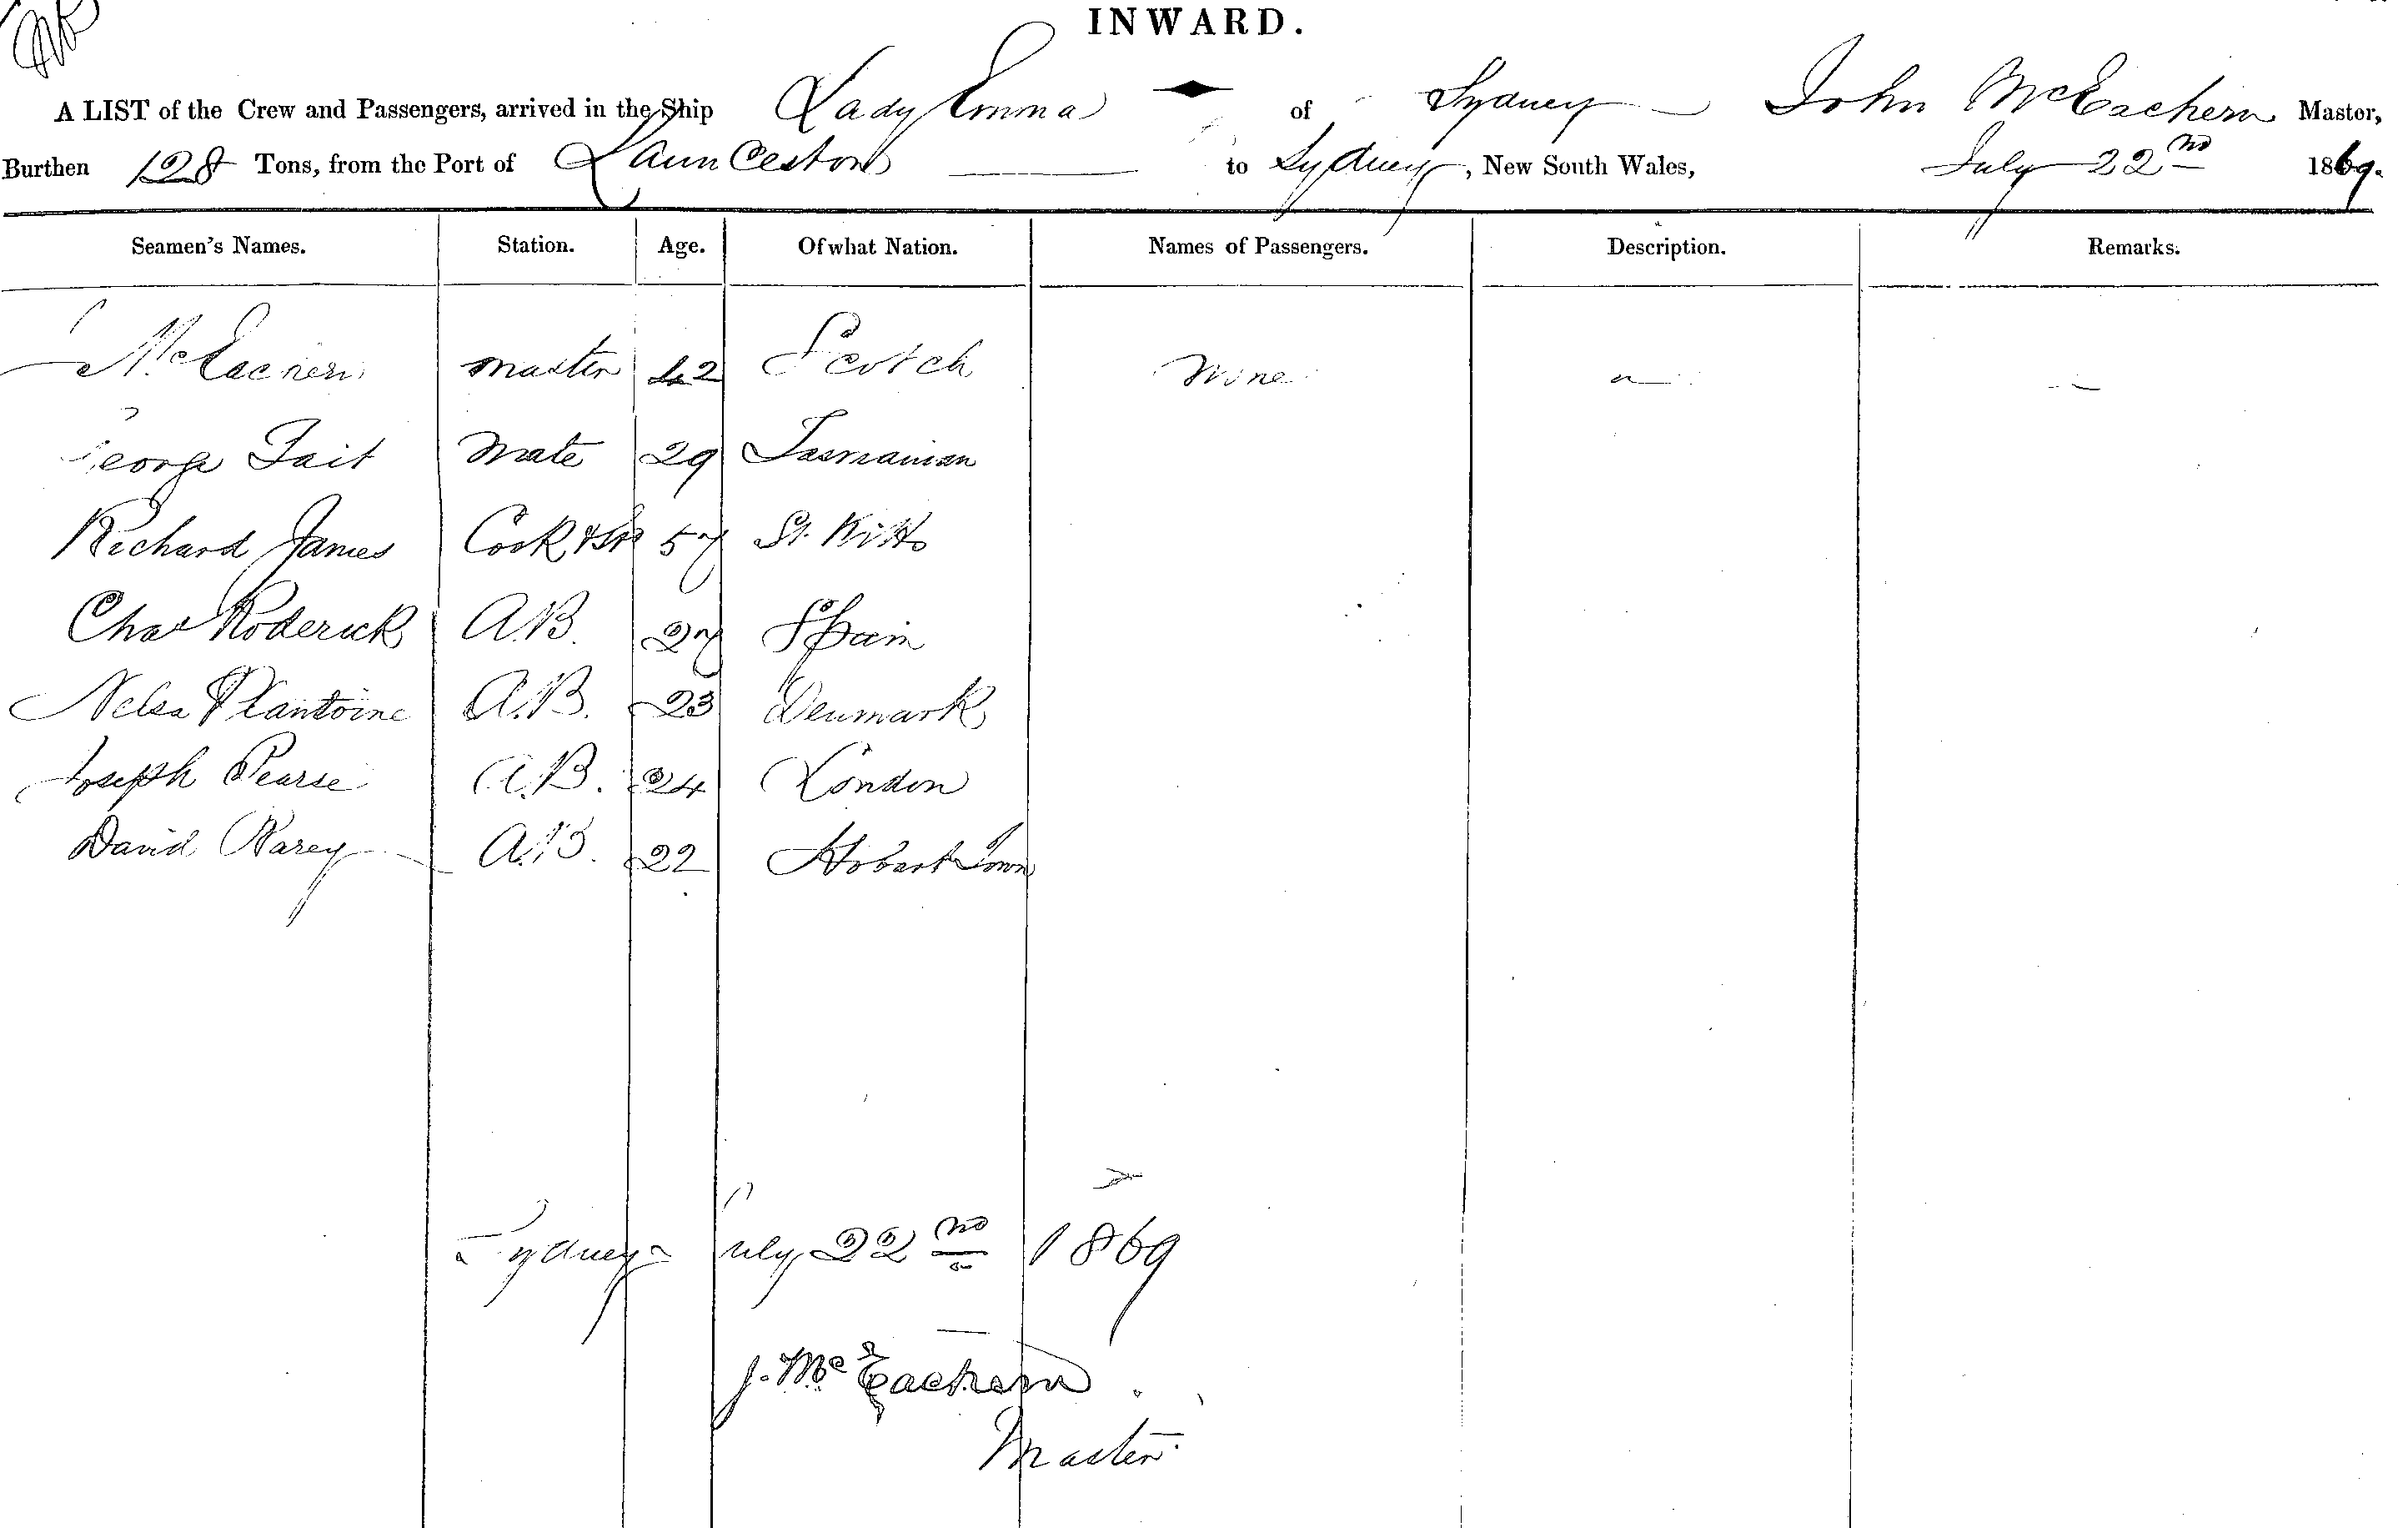 INWARD.
A LIST of the Crew and Passengers, arrived in the Ship Lady Emma of Sydney John McEachern Master,
Burthen 128 Tons, from the Port of Launceston to Sydney, New South Wales, July 22nd 1869.
Seamen's Names. Station. Age. Of what Nation. Names of Passengers. Description. Remarks.
McEachern master 42 Scotch None
George Tait Mate 29 Tasmanian
Richard James Cook & 57 St. Kitts
Chas Roderick A.B. 27 Spain
A.B. 23 Denmark
Joseph Pearse A.B. 24 London
David A.B. 22 Hobart Town
Sydney July 22nd 1869
J. McEachern
Master